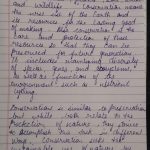 and wildlife. Conservation means
the wise use of the Earth and
its resources for the lasting good
of making. This conservation is the
care and protection of these
resources so that they can be
preserved for future generations.
It includes maintaining diversity
of species, genes and ecosystems,
as well as functions of the
environment such as nutrient
cycling.
Conservation is similar to preservation
but while both relate to the
protection of nature, they strive
to accomplish this task in different
ways. Conservation seeks the